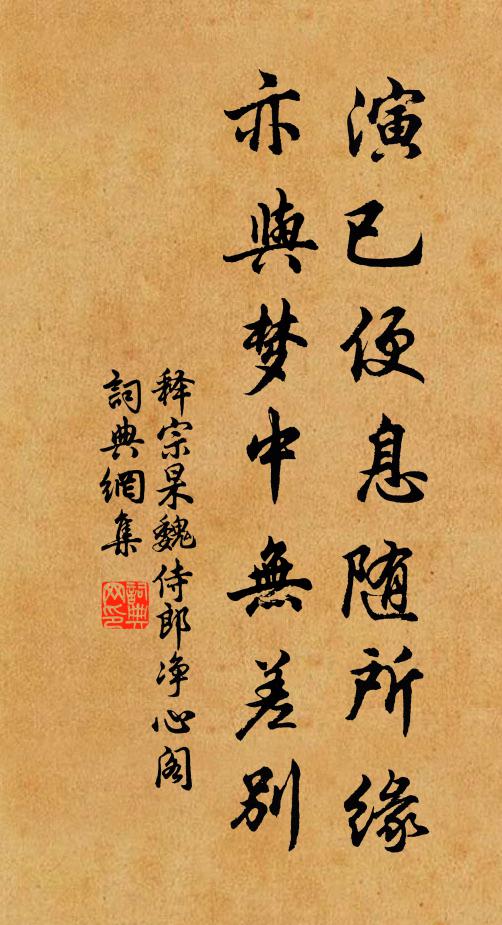 演已便息随所缘
亦與梦中無差别
释宗杲魏侍郎净心阁
詞典網集
詞典
网印